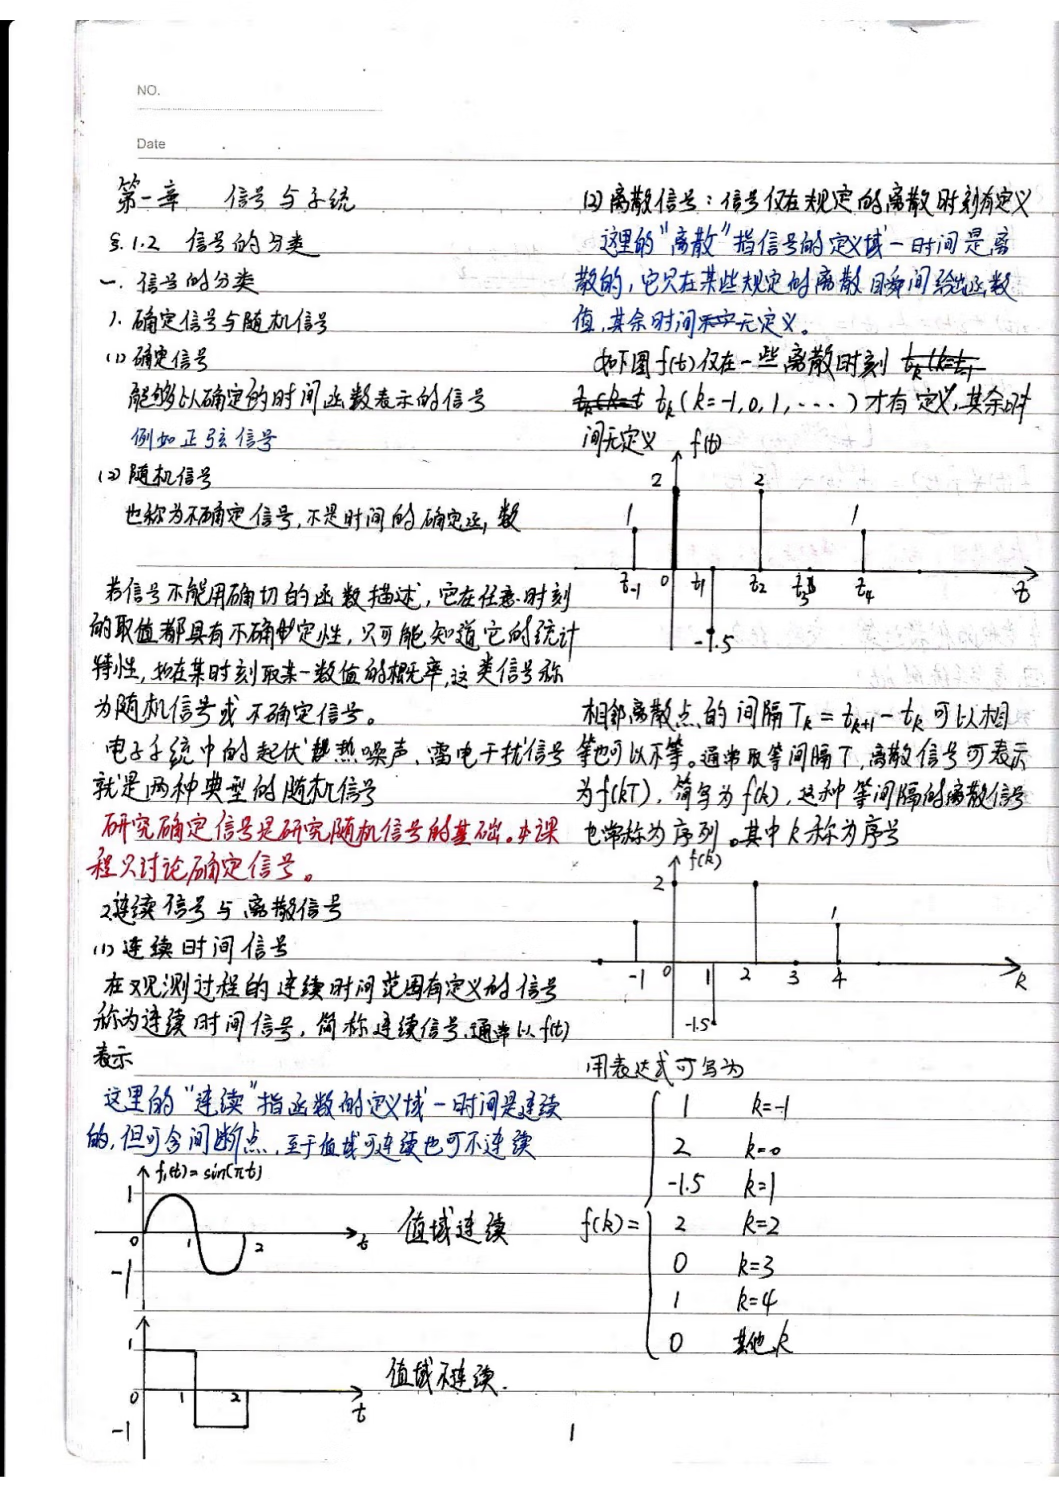 NO.
Date
第一章 信号与系统
§.1.2 信号的分类
一. 信号的分类
1. 确定信号与随机信号
(1) 确定信号
能够以确定的时间函数表示的信号
例如正弦信号
(2) 随机信号
也称为不确定信号,不是时间的确定函数
若信号不能用确切的函数描述,它在任意时刻
的取值都具有不确定性,只可能知道它的统计
特性,如在某时刻取某一数值的概率,这类信号称
为随机信号或不确定信号。
电子系统中的起伏热噪声、雷电干扰信号
就是两种典型的随机信号
研究确定信号是研究随机信号的基础。本课
程只讨论确定信号。
2.连续信号与离散信号
(1) 连续时间信号
在观测过程的连续时间范围有定义的信号
称为连续时间信号,简称连续信号.通常以f(t)
表示
这里的"连续"指函数的定义域-时间是连续
的,但可含间断点,至于值域可连续也可不连续
f₁(t)=sin(πt)
1
0 1 2 t
-1
值域连续
1
0 1 2 t
-1
值域不连续.
(2) 离散信号:信号仅在规定的离散时刻有定义
这里的"离散"指信号的定义域-时间是离
散的,它只在某些规定的离散瞬间给出函数
值,其余时间无定义。
如下图f(t)仅在一些离散时刻
tₖ(k=-1,0,1,····)才有定义,其余时
间无定义
f(t)
2 2
1 1
t₋₁ 0 t₁ t₂ t₃ t₄ t
-1.5
相邻离散点的间隔Tₖ=tₖ₊₁-tₖ可以相
等也可以不等。通常取等间隔T,离散信号可表示
为f(kT),简写为f(k),这种等间隔的离散信号
也常称为序列。其中k称为序号
f(k)
2
1
-1 0 1 2 3 4 k
-1.5
用表达式可写为
1 k=-1
2 k=0
-1.5 k=1
f(k)= 2 k=2
0 k=3
1 k=4
0 其他k
1